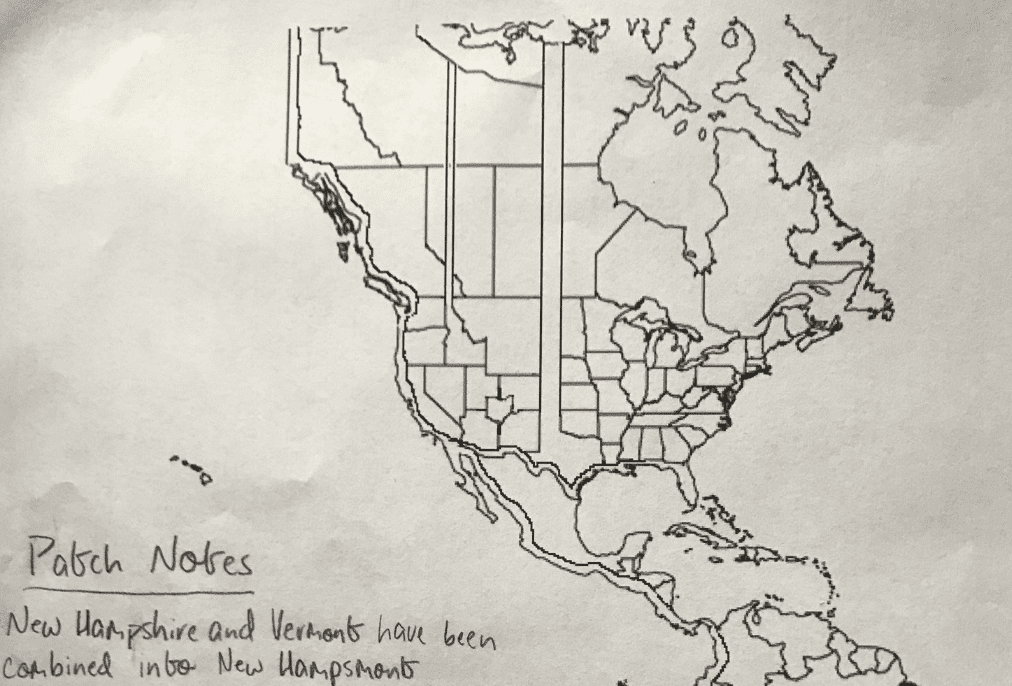 Patch Notes
New Hampshire and Vermont have been
combined into New Hampsmont